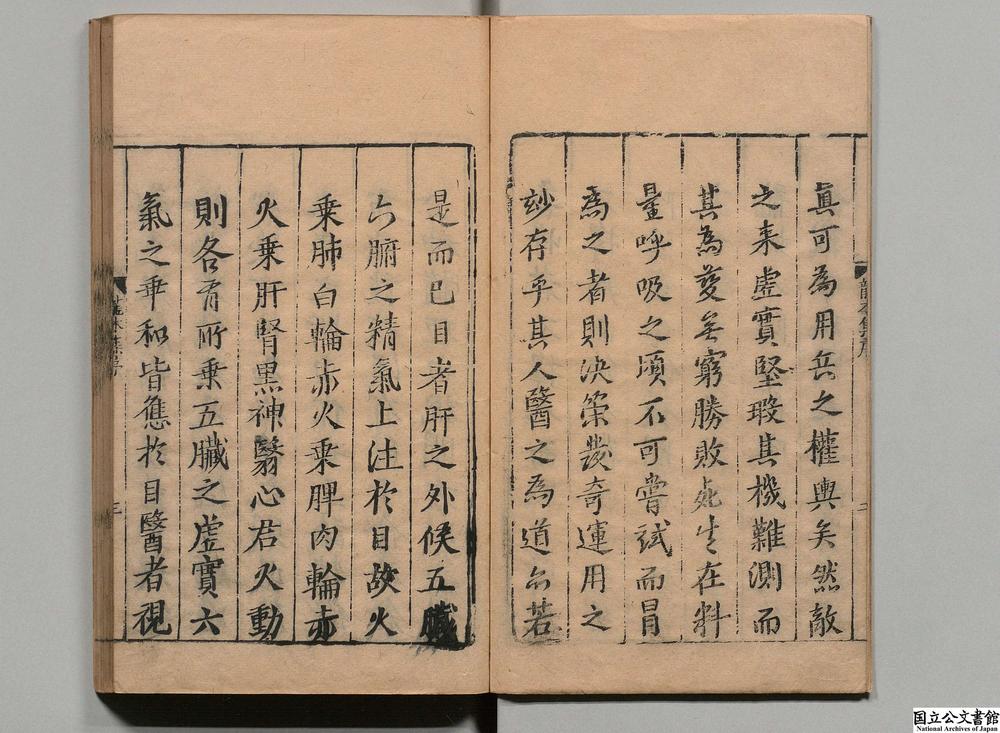 眞可為用兵之權輿矣然敵
之来虛實堅瑕其機難測而
其為變無窮勝敗死生在料
量呼吸之頃不可嘗試而冒
為之者則决策發奇運用之
玅存乎其人醫之為道亦若
是而已目者肝之外候五臓
六腑之精氣上注於目故火
乗肺白輪赤火乗脾肉輪赤
火乗肝腎黒神翳心君火動
則各有所乗五臓之虛實六
氣之乖和皆應於目醫者視
國立公文書館
National Archives of Japan